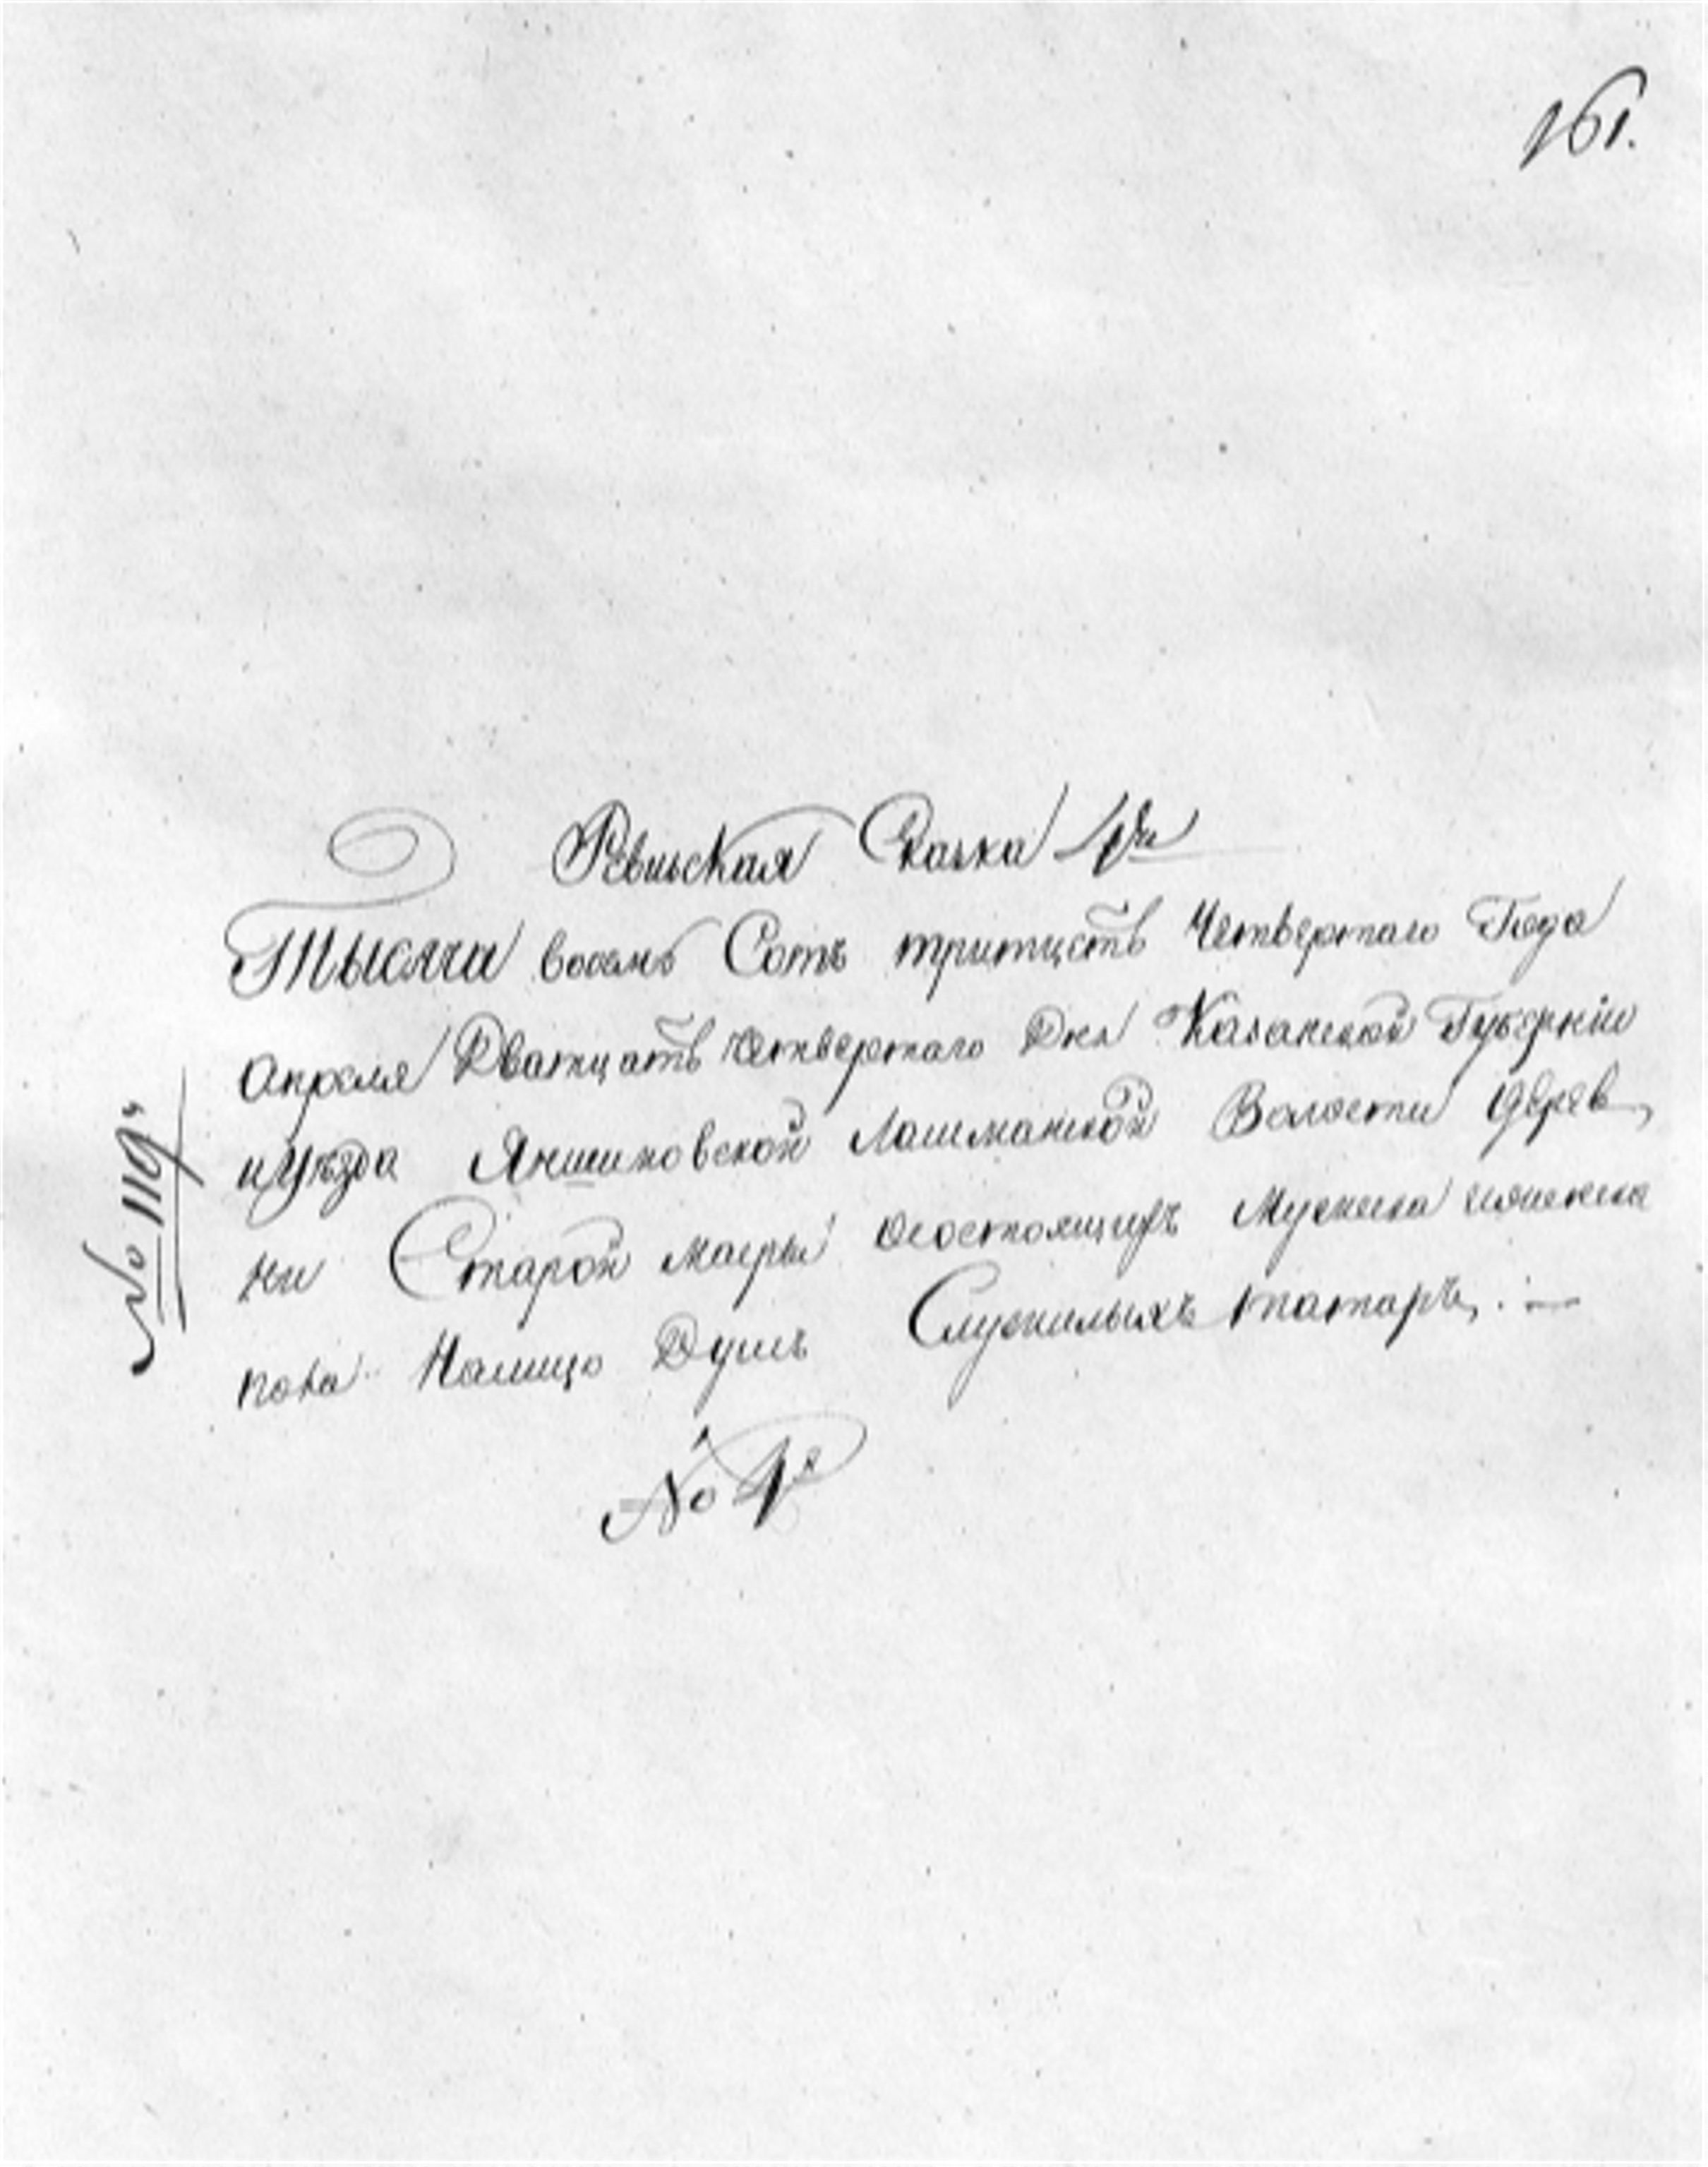 161.
Ревиская Скаска 1я
Тысяча восемь Сотъ тритцеть Четвертаго Года
Апреля Дватцать четвертаго Дня Казанской Губернiи
и Уезда Яншиковской Лашманской Волости дерев
ни Старой масры осостоящихъ Мужеска иженска
пола Налицо Душъ Служилыхъ татаръ. —
№ 1я
№ 119